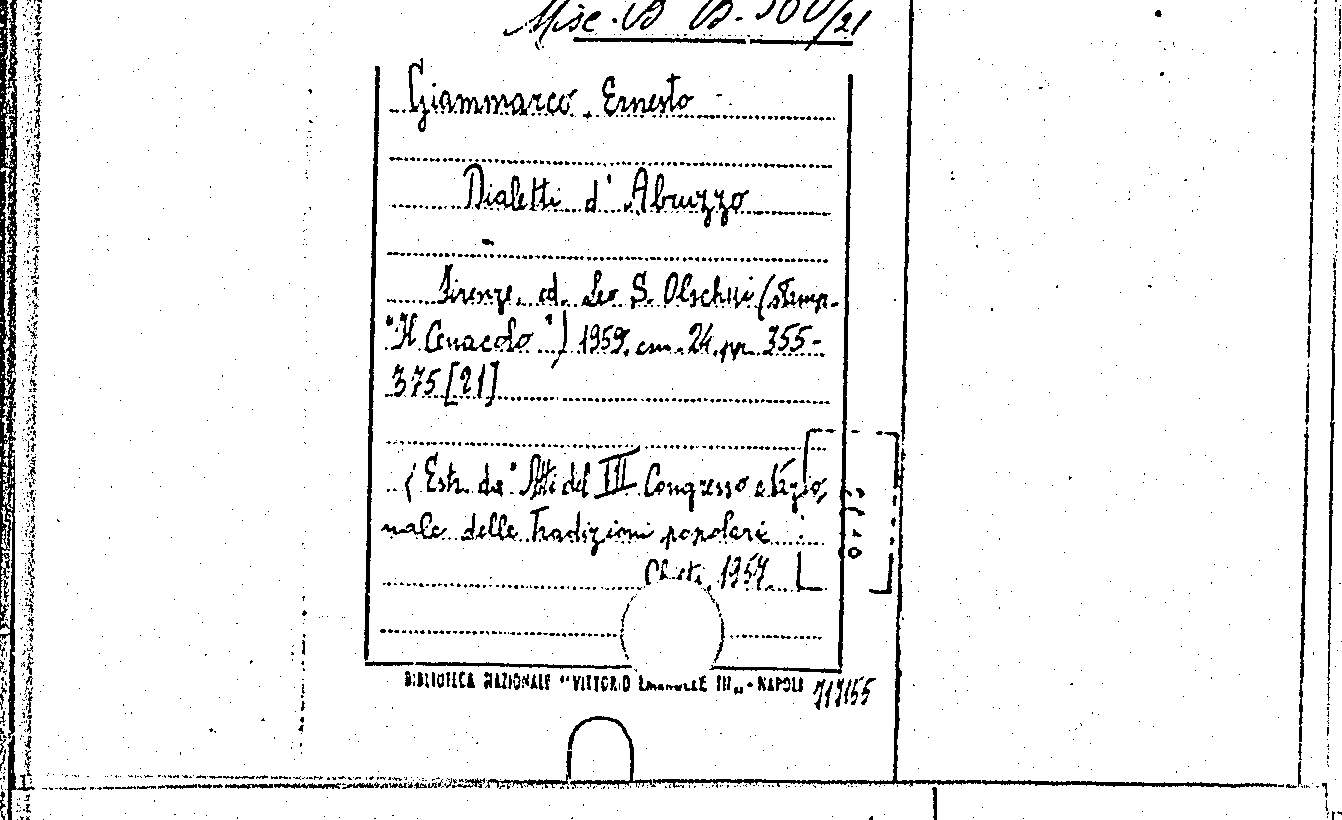 Misc. B B. 500/21
Giammarco Ernesto
Dialetti d' Abruzzo
Firenze, ed. Leo S. Olschki (stamp.
"Il Cenacolo") 1959, cm. 24, pp. 355-
375 [21]
(Estr. da "Atti del III Congresso
nale delle Tradizioni popolari
Chieti, 1957.
BIBLIOTECA NAZIONALE "VITTORIO EMANUELE III" - NAPOLI 717155